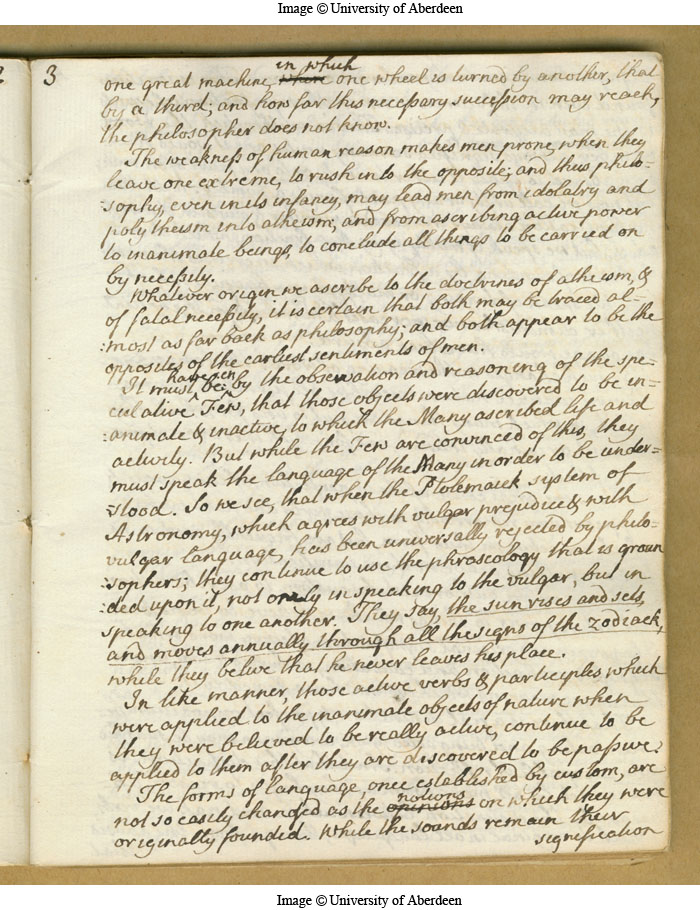 Image © University of Aberdeen
3
in which
one great machine, where one wheel is turned by another, that
by a third; and how far this necessary succession may reach,
the philosopher does not know.
The weakness of human reason makes men prone, when they
leave one extreme, to rush into the opposite; and thus philo-
:sophy, even in its infancy, may lead men from idolatry and
polytheism into atheism, and from ascribing active power
to inanimate beings, to conclude all things to be carried on
by necessity.
Whatever origin we ascribe to the doctrines of atheism, &
of fatal necessity, it is certain that both may be traced al-
:most as far back as philosophy; and both appear to be the
opposites of the earliest sentiments of men.
have been
It must, by the observation and reasoning of the spe-
culative Few, that those objects were discovered to be in=
:animate & inactive, to which the Many ascribed life and
activity. But while the Few are convinced of this, they
must speak the language of the Many in order to be under=
:stood. So we see, that when the Ptolemaick system of
Astronomy, which agrees with vulgar prejudice & with
vulgar language, has been universally rejected by philo-
:sophers; they continue to use the phraseology that is groun
:ded upon it, not only in speaking to the vulgar, but in
speaking to one another. They say, the sun rises and sets,
and moves annually through all the signs of the zodiack,
while they belive that he never leaves his place.
In like manner, those active verbs & participles which
were applied to the inanimate objects of nature when
they were believed to be really active, continue to be
applied to them after they are discovered to be passive.
The forms of language, once established by custom, are
notions
not so easily changed as the opinions on which they were
originally founded. While the sounds remain their
signification
Image © University of Aberdeen